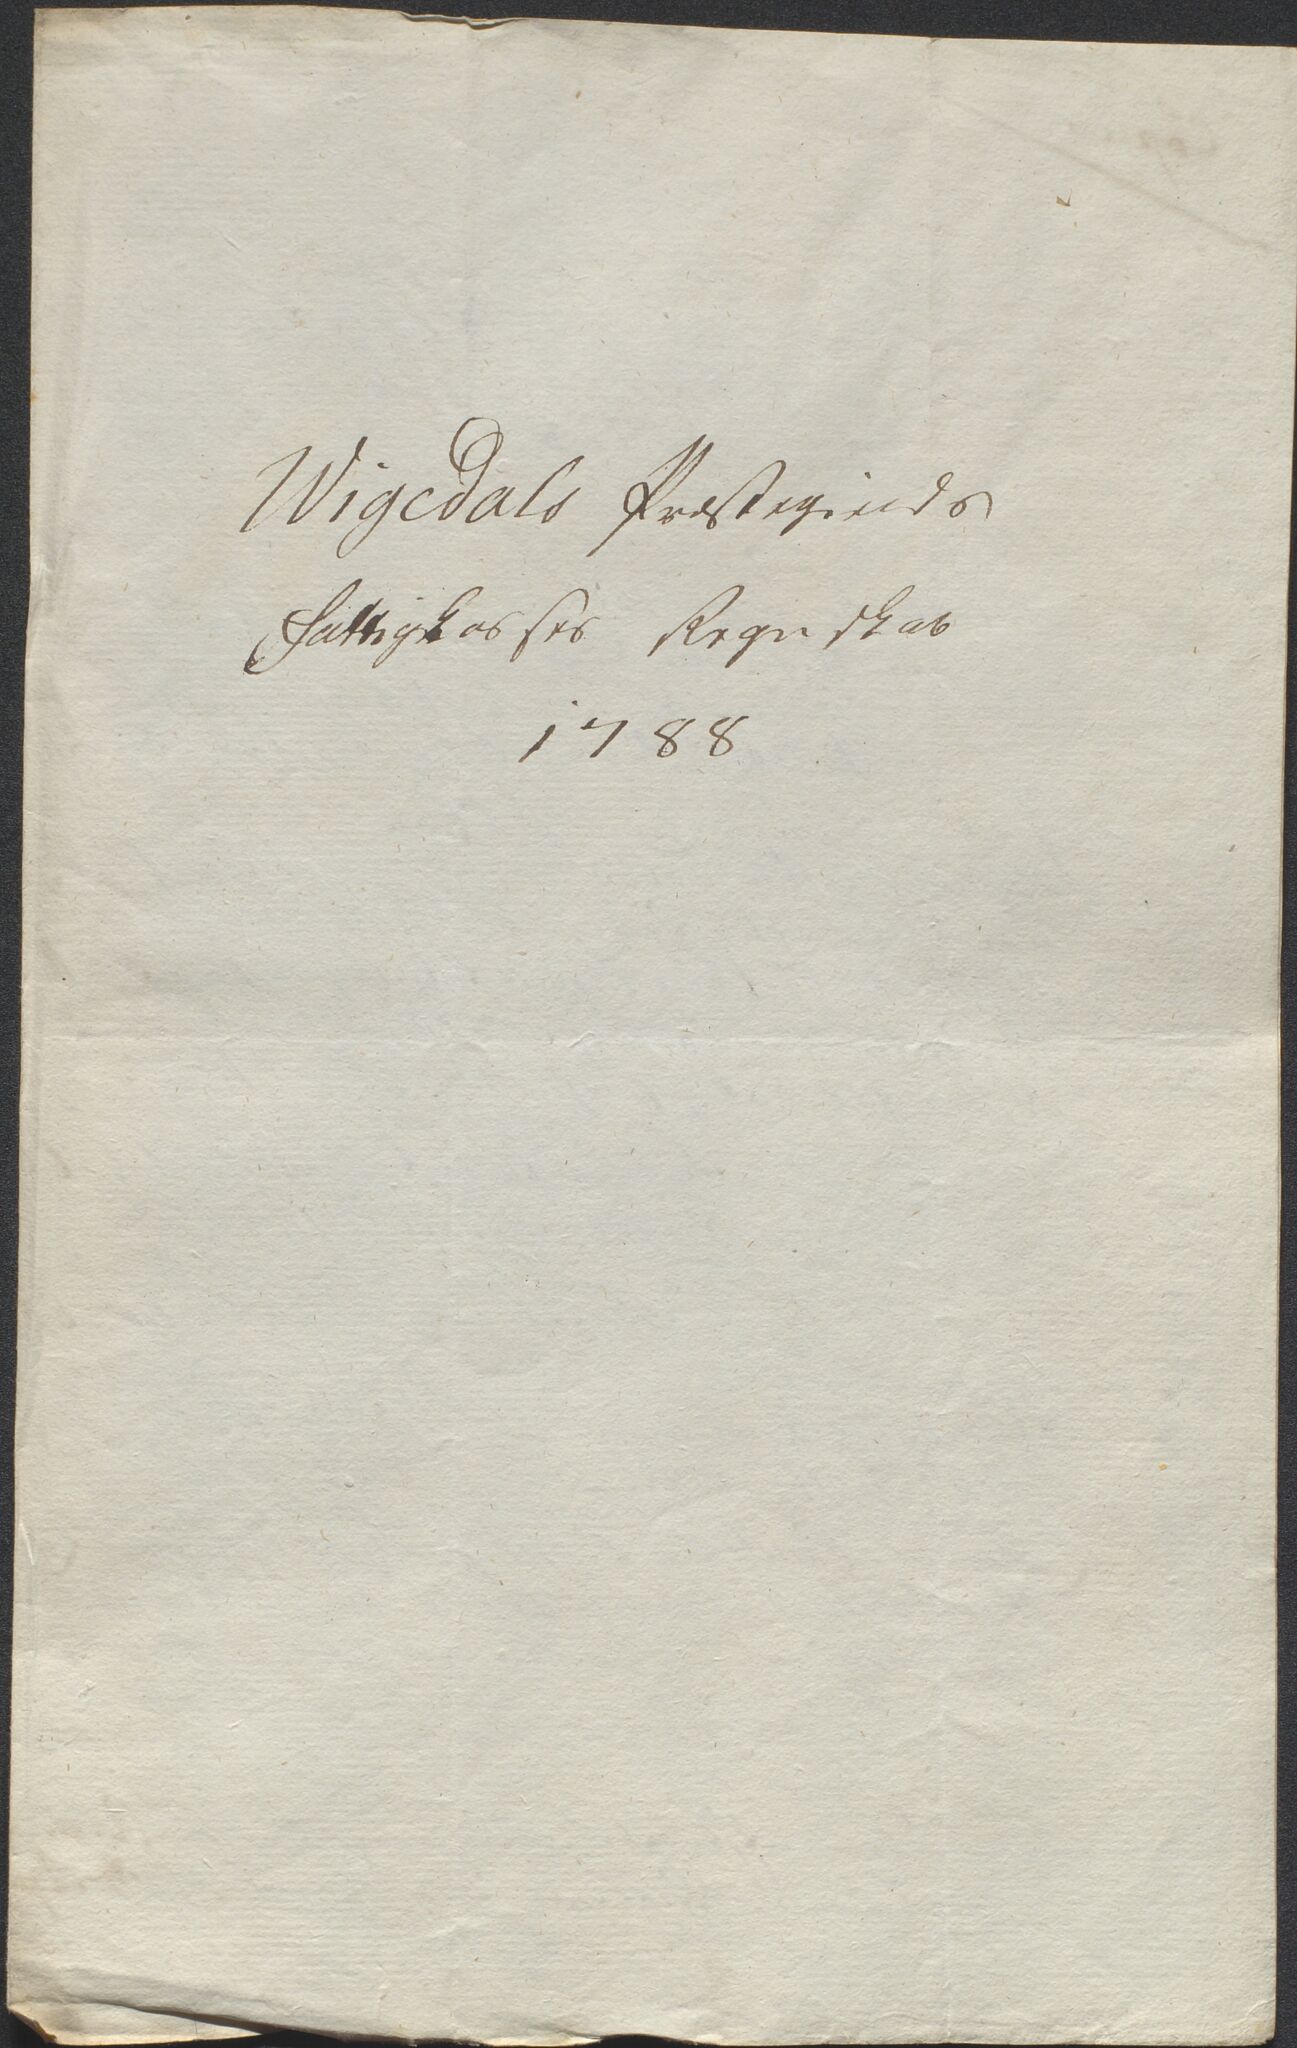 Wigedals Præstegields
Fattigkasses Regnskab
1788